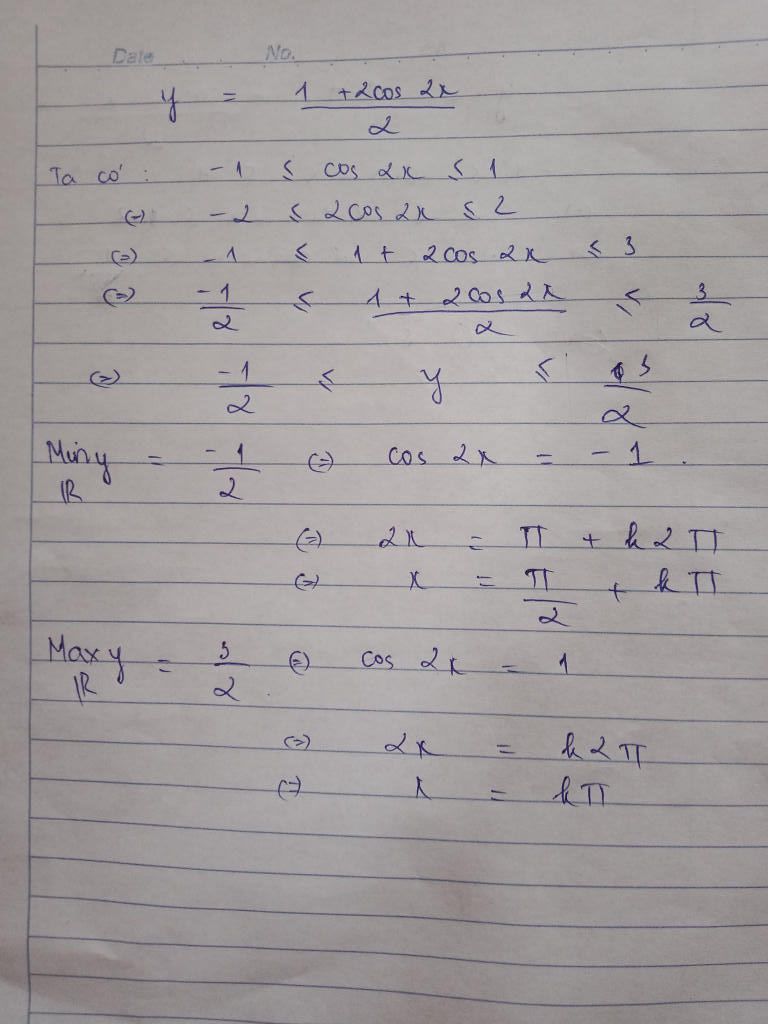 Date No.
y = (1 + 2cos 2x)/2
Ta có: -1 ≤ cos 2x ≤ 1
(=) -2 ≤ 2cos 2x ≤ 2
(=) -1 ≤ 1 + 2cos 2x ≤ 3
(=) -1/2 ≤ (1 + 2cos 2x)/2 ≤ 3/2
(=) -1/2 ≤ y ≤ 3/2
Min y = -1/2 (=) cos 2x = -1.
ℝ
(=) 2x = π + k2π
(=) x = π/2 + kπ
Max y = 3/2 (=) cos 2x = 1
ℝ
(=) 2x = k2π
(=) x = kπ